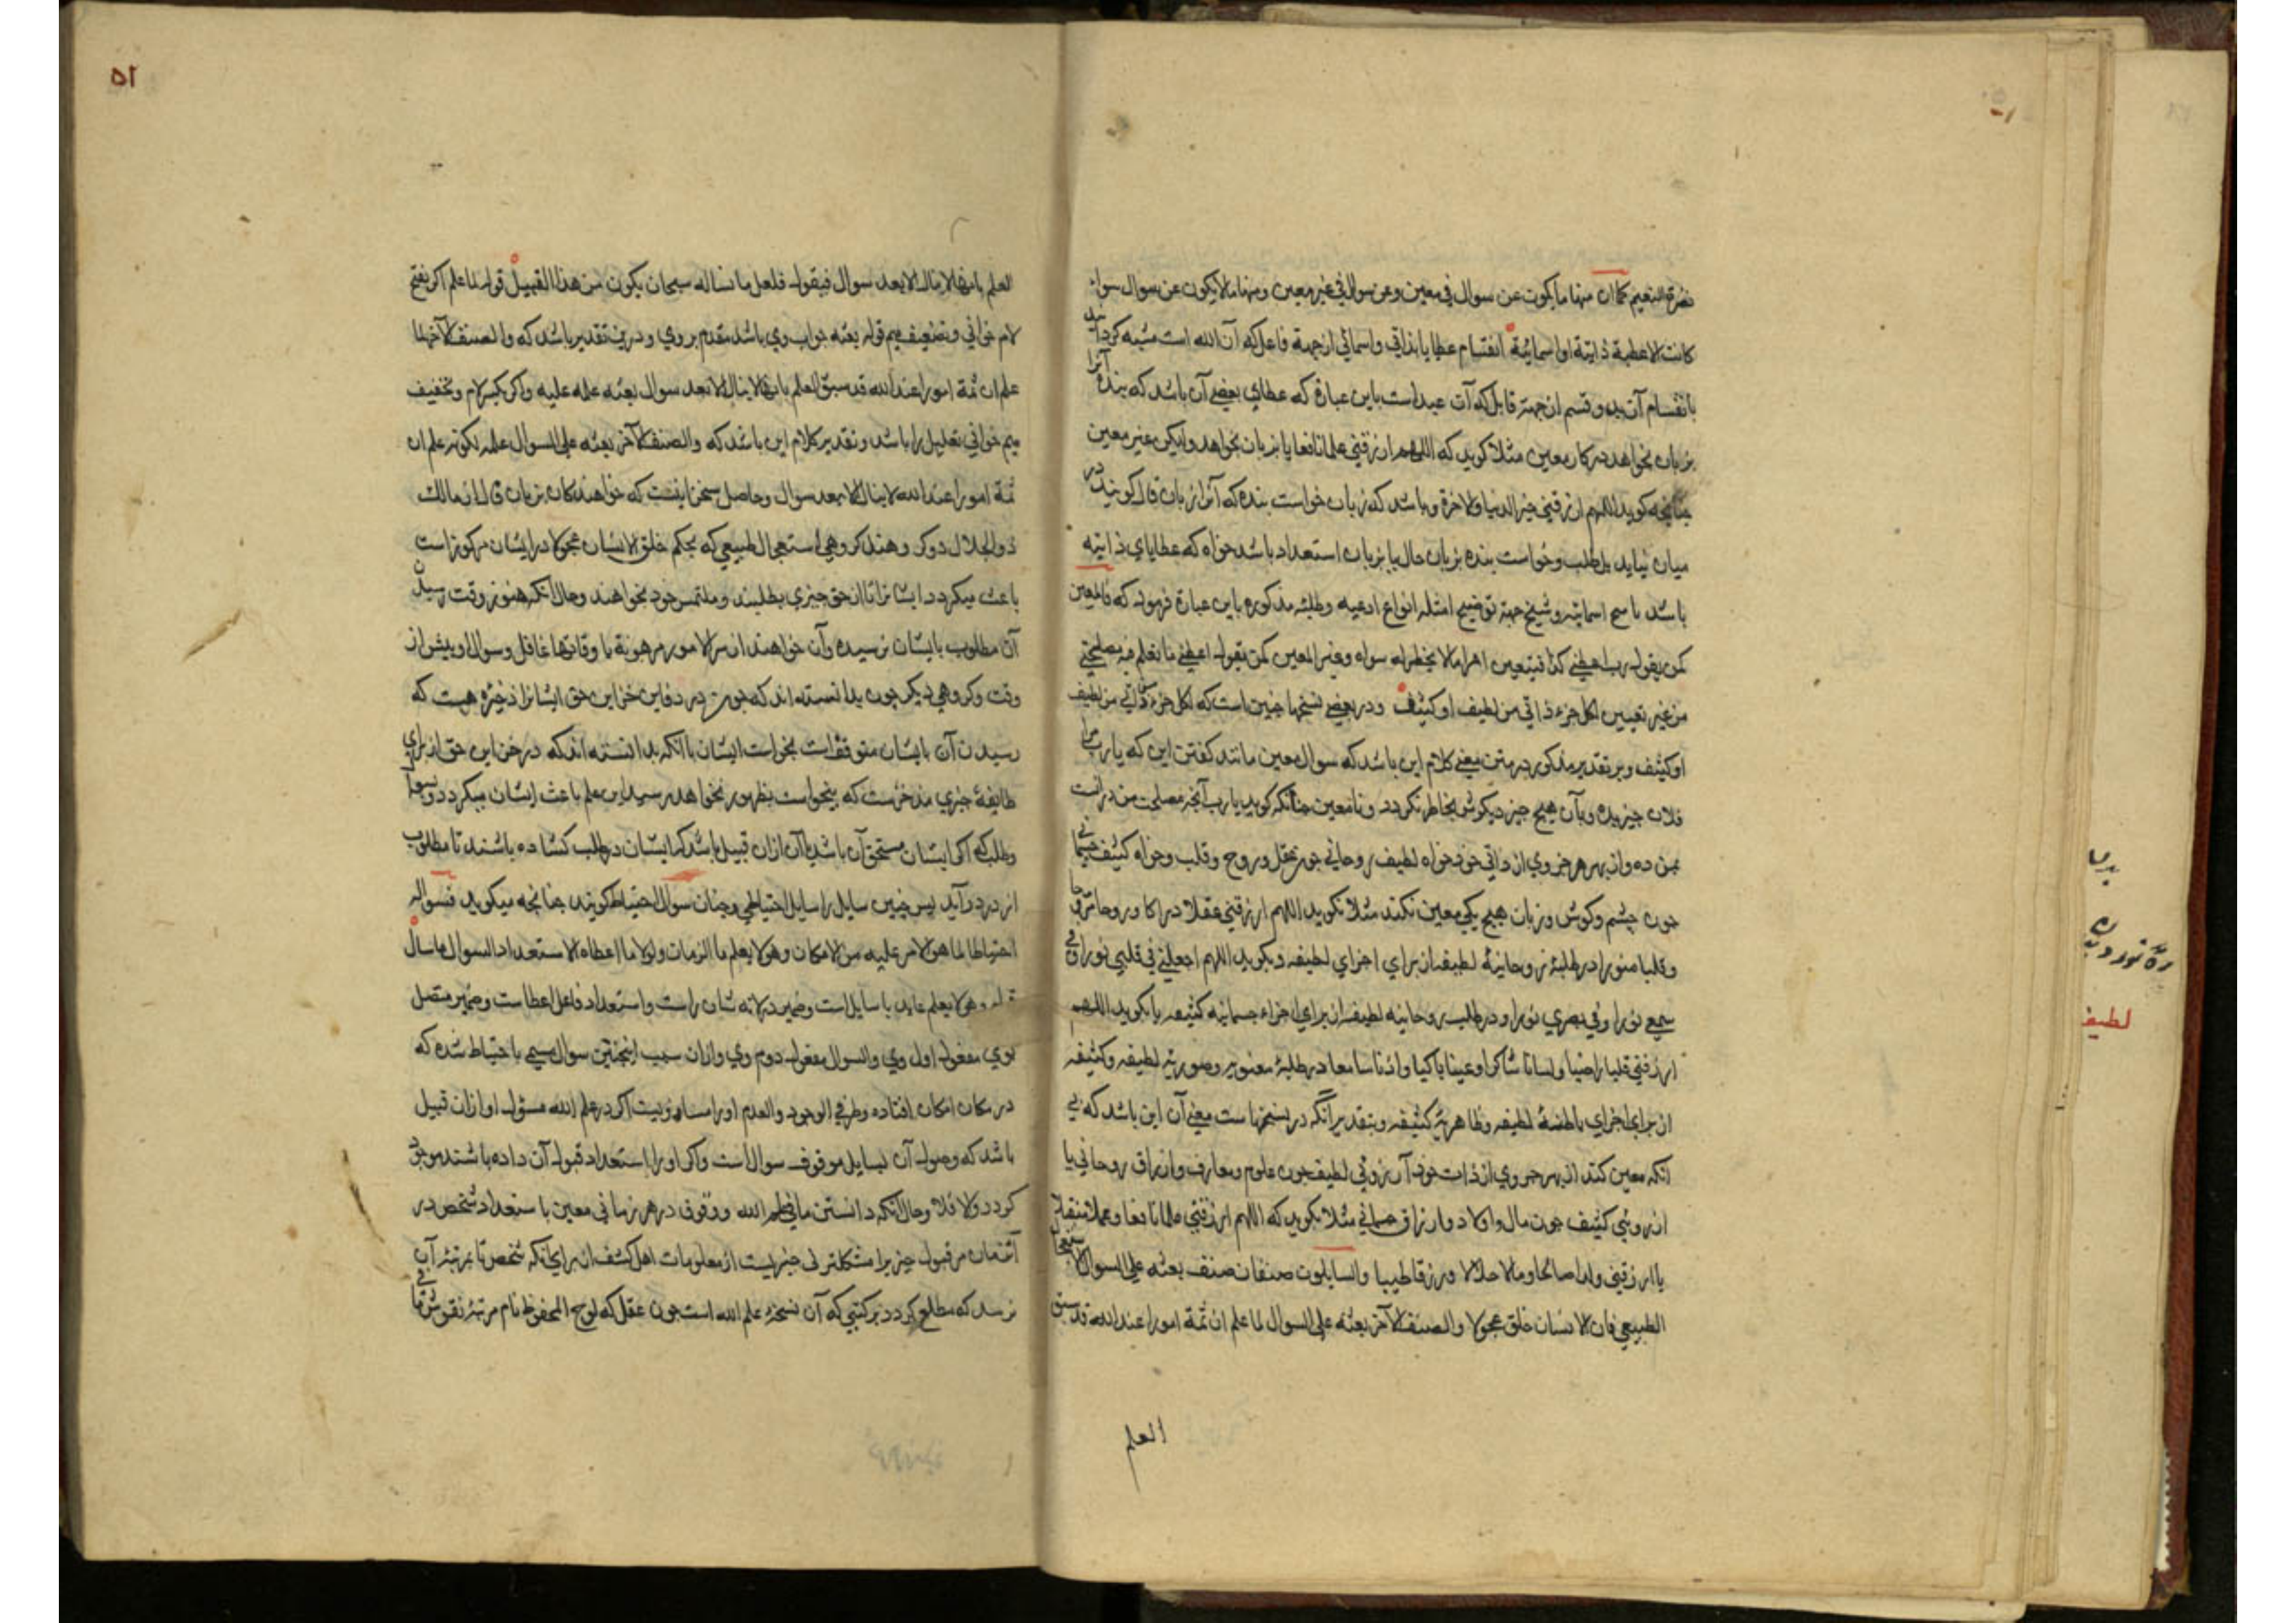 نضرة النعیم کما ان منها ما یکون عن سوال فی معین وعن سوال فی غیر معین ومنها ما لا یکون عن سوال سواء
کانت الاعطیة ذاتیة او اسمائیة انقسام عطایا بذاتی واسمائی از جهة فاعل که آن الله است مشبه کرد
بانقسام آن بدو قسم از جهة قابل که آن عبد است باین عبارة که عطای بعضی آن باشد که بنده آنرا
بزبان بخواهد در کار معین مثلا کوید که اللهم ارزقنی علما نافعا یا بزبان بخواهد ولیکن غیر معین
چنانچه کوید اللهم ارزقنی خیر الدنیا والاخرة وباشد که زبان خواست بنده که آنرا زبان قال کویند در
میان نیاید بل طلب وخواست بنده بزبان حال یا بزبان استعداد باشد خواه که عطایای ذاتیه
باشد یا سمع اسمائیه وشیخ جهة توضیح امثله انواع ادعیه وطلبه مذکوره باین عبارة فرمود که فالمعین
کمن یقول رب اعطنی کذا فیتعین امرا ما لا یخطر له سواه وغیر المعین کمن یقول اعطنی ما تعلم فیه مصلحتی
من غیر تعیین لکل جزء ذاتی من لطیف او کثیف ودر بعضی نسخها چنین است که لکل جزء من ذاتی من لطیف
او کثیف وبر تقدیر مذکور در متن معنی کلام این باشد که سوال معین مانند کفتن این که یا رب مرا
فلان چیز بده وبآن هیچ چیز دیکرش بخاطر نکردد ونامعین چنانکه کوید یا رب آنچه مصلحت من در آنست
بمن ده واز بهر هر جزوی از ذاتی خود خواه لطیف روحانی چون عقل وروح وقلب وخواه کثیف جسمانی
چون چشم وکوش وزبان هیچ یکی معین نکند مثلا نکوید اللهم ارزقنی عقلا دراکا وروحا
وقلبا منورا در طلبهٔ روحانیهٔ لطیفه از برای اجزای لطیفه وبکوید اللهم اجعل لی فی قلبی نورا وفی
سمعی نورا وفی بصری نورا ودر طلب روحانیه لطیفه از برای اجزاء جسمانیه کثیفه یا بکوید اللهم
ارزقنی قلبا راضیا ولسانا شاکرا وعینا باکیا واذنا سامعا در طلبهٔ معنویه وصوریه لطیفه وکثیفه
از برای اجزای باطنهٔ لطیفه وظاهریهٔ کثیفه وبتقدیر آنکه در نسخهاست معنی آن این باشد که بی
آنکه معین کند از بهر جزوی از ذات خود آرزوئی لطیف چون علوم ومعارف وارزاق روحانی یا
آرزوئی کثیف چون مال واولاد وارزاق جسمانی مثلا بکوید که اللهم ارزقنی علما نافعا وعملا متقبلا
یا ارزقنی ولدا صالحا ومالا حلالا ورزقا طیبا والسایلون صنفان صنف بعثه علی السوال الاستعجال
الطبیعی فان الانسان خلق عجولا والصنف الآخر بعثه علی السوال لما علم ان ثمة امورا عند الله قد سبق
العلم
العلم بانها لا ینال الا بعد سوال فیقول فلعل ما نساله سبحانه یکون من هذا القبیل قوله لما علم اکر بفتح
لام خوانی وتضعیف میم قوله بعثه جواب وی باشد مقدم بر وی ودرین تقدیر باشد که والصنف الآخر لما
علم ان ثمة امورا عند الله قد سبق العلم بانها لا ینال الا بعد سوال بعثه علمه علیه واکر بکسر لام وتخفیف
میم خوانی تعلیل را باشد وتقدیر کلام این باشد که والصنف الآخر بعثه علی السوال علمه لکونه علم ان
ثمة امورا عند الله لا ینال الا بعد سوال وحاصل سخن اینست که خواهندکان بزبان قال از مالک
ذو الجلال دو کروهند کروهی استعجال طبیعی که بحکم خلق الانسان عجولا در ایشان مرکوز است
باعث میکردد ایشانرا تا از حق چیزی بطلبند وملتمس خود بخواهند وحال آنکه هنوز وقت رسیدن
آن مطلوب بایشان نرسیده وآن خواهند از سر الامور مرهونة باوقاتها غافل وسوال او پیش از
وقت وکروهی دیکر چون بدانسته اند که چون در دفاین خزاین حق ایشانرا ذخیره هست که
رسیدن آن بایشان متوقفست بخواست ایشان با آنکه بدانسته اند که در خزاین حق از برای
طایفهٔ چیزی مدخرست که بیخواست بظهور نخواهد رسید این علم باعث ایشان میکردد وسوال
وطلب که اکر ایشان مستحق آن باشد یا آن ازان قبیل باشد که ایشان در طلب کشاده باشند تا مطلوب
از در درآید پس چنین سایل را سایل احتیاطی وچنان سوال احتیاط کویند چنانچه میکوید فسواله
احتیاطا لما هو الامر علیه من الامکان وهو لا یعلم ما الزمان ولولا ما اعطاه الاستعداد السوال ما سال
قوله وهو لا یعلم عاید با سایل است وضمیر در لانه شان راست واستعداد فاعل اعطاست وضمیر متصل
بوی مفعول اول وی والسوال مفعول دوم وی وازان سبب اینچنین سوال مسمی باحتیاط شده که
در مکان امکان افتاده وطرفی الوجود والعدم اورا مساویست اکر در علم الله مسؤل او ازان قبیل
باشد که وصول آن بسایل موقوف سوال است واکر اورا استعداد قبول آن داده باشند موجود
کردد والا فلا وحال آنکه دانستن ما فی علم الله ووقوف در هر زمانی معین باستعداد شخص در
آنزمان مر قبول چیزیرا مشکلترین چیزیست از معلومات اهل کشف از برای آنکه شخص تا بمرتبهٔ آن
نرسد که مطلع کردد بر کتبی که آن نسخهٔ علم الله است چون عقل که لوح المحفوظ نام مرتبهٔ نقوش
۵۱
لطیفه